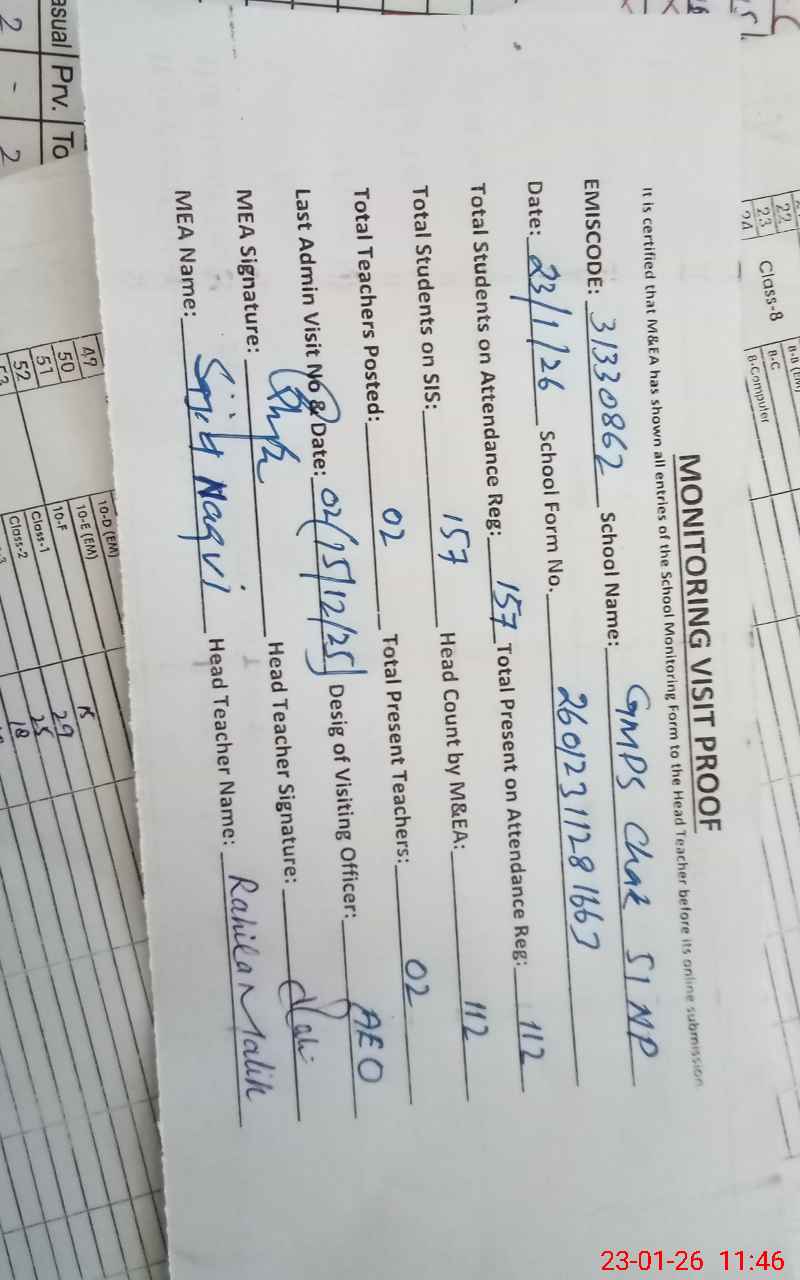 MONITORING VISIT PROOF
It is certified that M&EA has shown all entries of the School Monitoring Form to the Head Teacher before its online submission
EMISCODE: 31330862 School Name: GMPS Chak 51 NP
Date: 23/1/26 School Form No. 26012311281667
Total Students on Attendance Reg: 157 Total Present on Attendance Reg: 112
Total Students on SIS: 157 Head Count by M&EA: 112
Total Teachers Posted: 02 Total Present Teachers: 02
Last Admin Visit No & Date: 02(15/12/25) Desig of Visiting Officer: AEO
MEA Signature: Head Teacher Signature:
MEA Name: Sajid Naqvi Head Teacher Name: Rahila Malik
asual Prv. To
2 - 2
22
23
24
Class-8
8-B (EM)
8-C
8-Computer
49
50
51
52
53
10-D (EM)
10-E (EM)
10-F 29
Class-1 25
Class-2 18
23-01-26 11:46